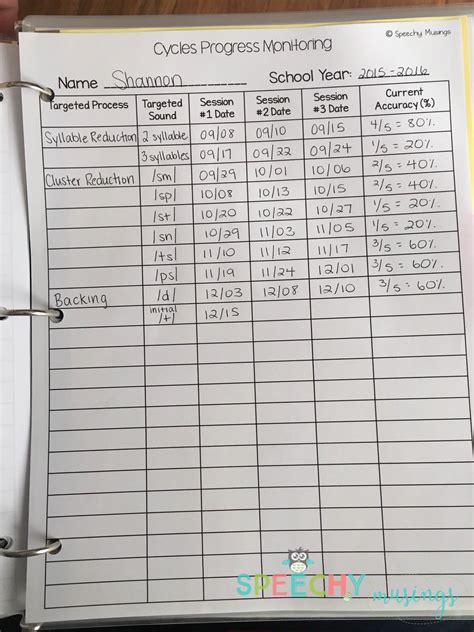 © Speechy Musings
Cycles Progress Monitoring
Name Shannon School Year: 2015-2016
Targeted Process Targeted Sound Session #1 Date Session #2 Date Session #3 Date Current Accuracy (%)
Syllable Reduction 2 syllable 09/08 09/10 09/15 4/5 = 80%
3 syllables 09/17 09/22 09/24 1/5 = 20%
Cluster Reduction /sm/ 09/29 10/01 10/06 2/5 = 40%
/sp/ 10/08 10/13 10/15 2/5 = 40%
/st/ 10/20 10/22 10/27 1/5 = 20%
/sn/ 10/29 11/03 11/05 1/5 = 20%
/ts/ 11/10 11/12 11/17 3/5 = 60%
/ps/ 11/19 11/24 12/01 3/5 = 60%
Backing /d/ 12/03 12/08 12/10 3/5 = 60%
initial /t/ 12/15
SPEECHY musings